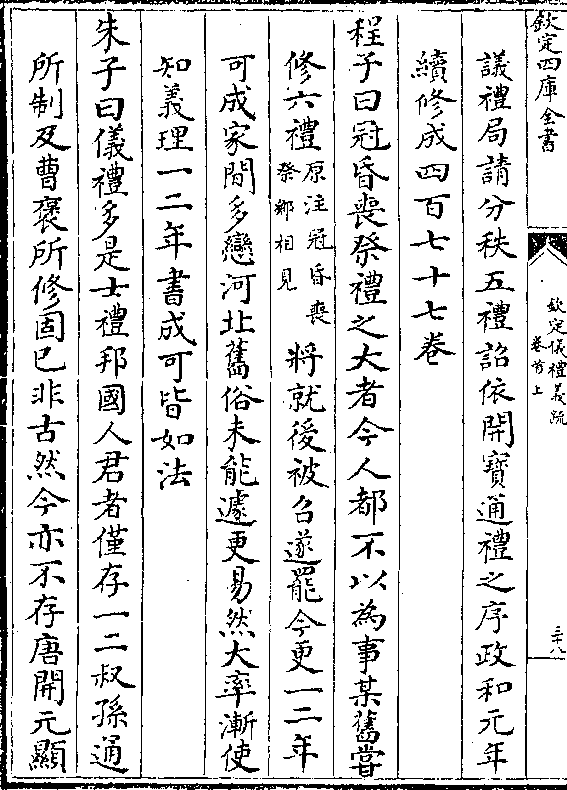 欽定四庫全書
欽定儀禮義疏
卷首上
三十八
議禮局請分秩五禮詔依開寶通禮之序政和元年
續修成四百七十七卷
程子曰冠昏喪祭禮之大者今人都不以為事某舊嘗
修六禮原注冠昏喪祭鄉相見將就後被召遂罷今更一二年
可成家間多戀河北舊俗未能遽更易然大率漸使
知義理一二年書成可皆如法
朱子曰儀禮多是士禮邦國人君者僅存一二叔孫通
所制及曹褒所修固已非古然今亦不存唐開元顯